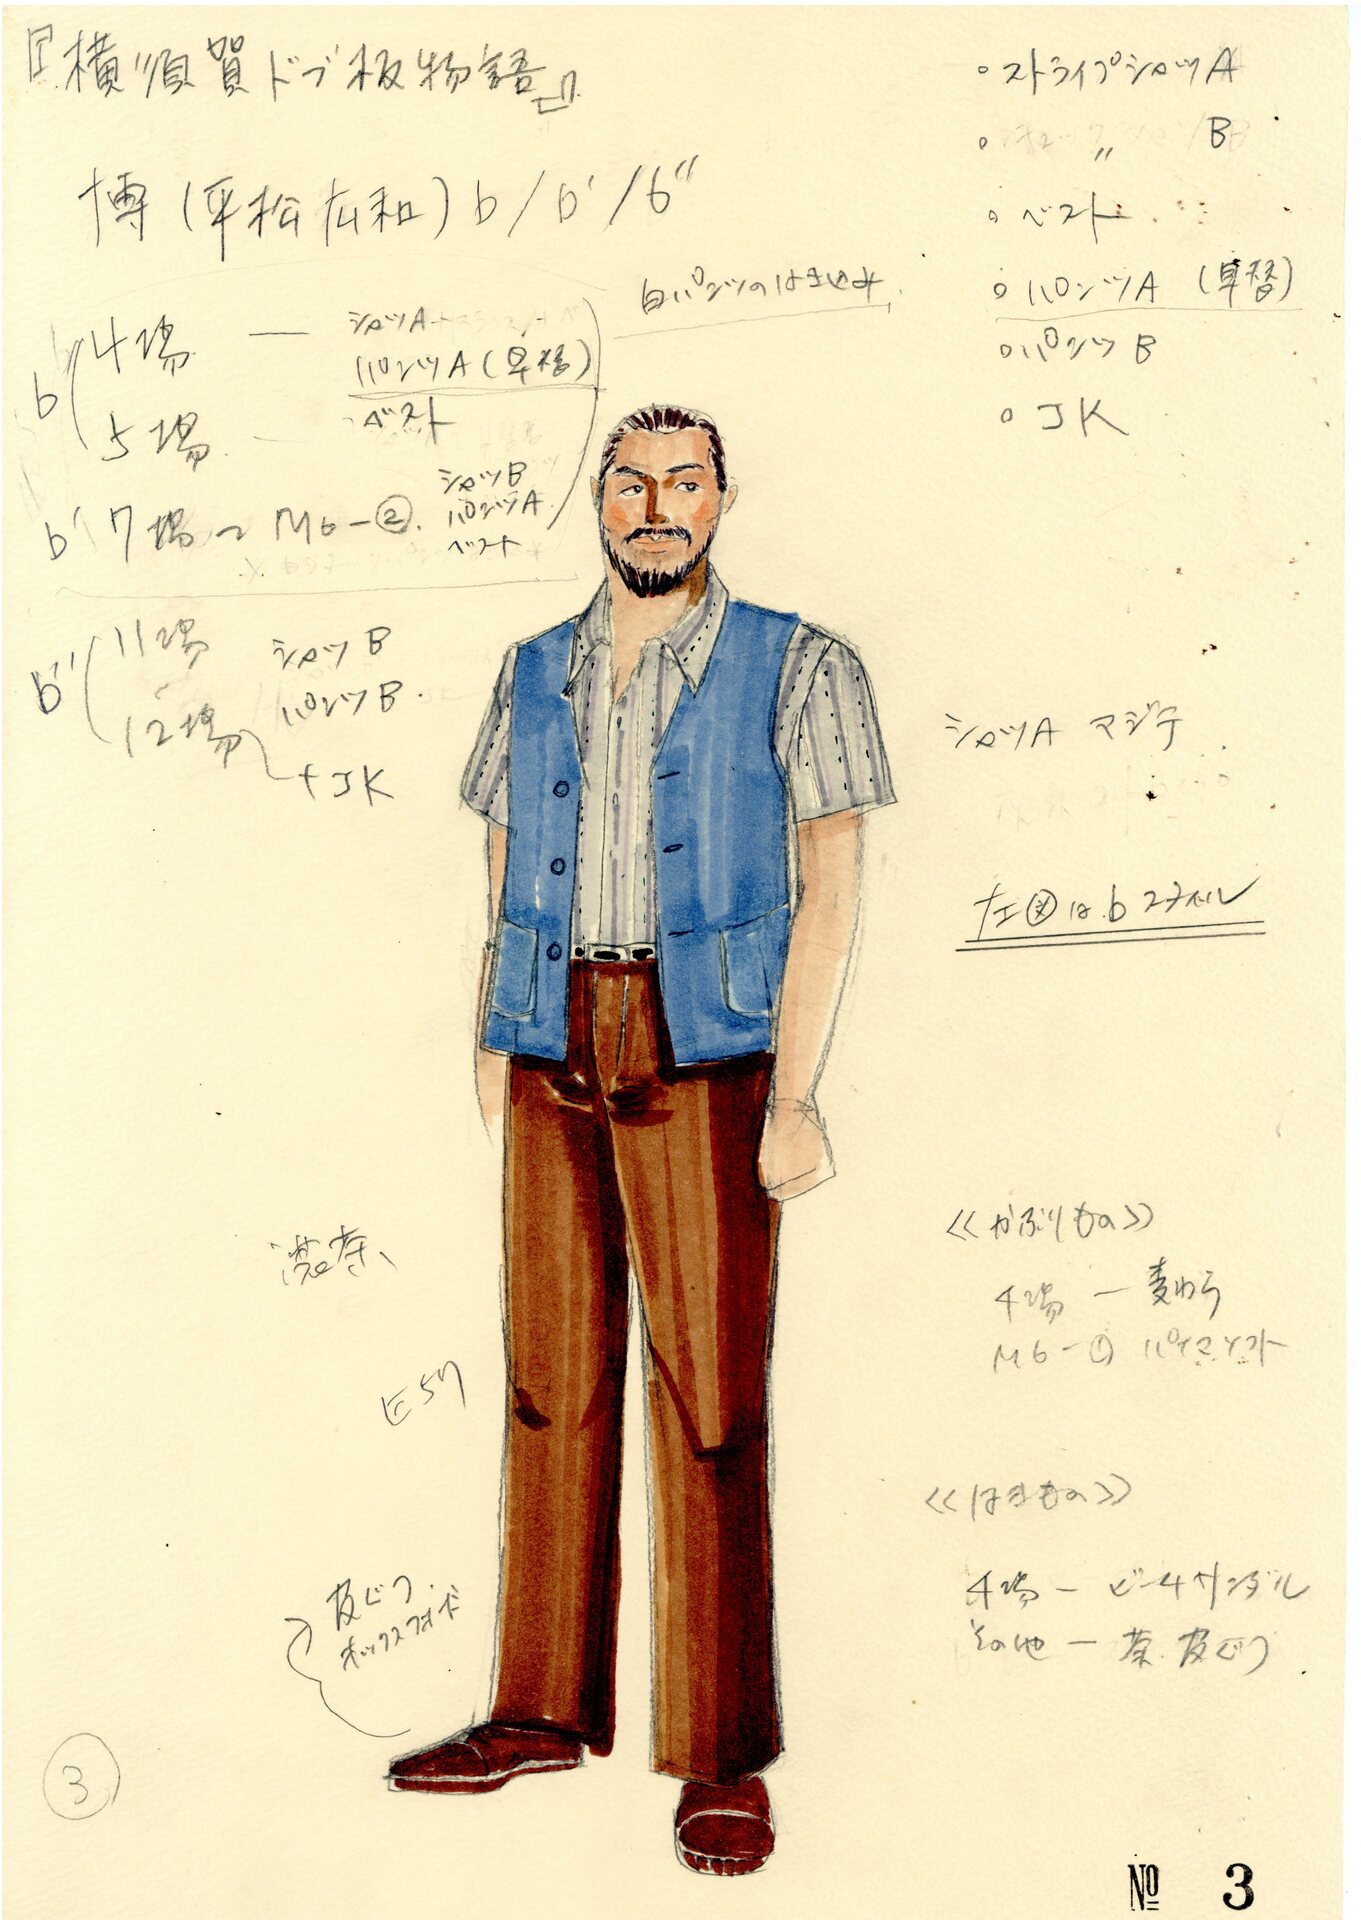 『横須賀ドブ板物語』
博(平松広和) b/b'/b"
b
4場 — シャツA
パンツA(早替)
ベスト
5場
白パンツのはきこみ
b' 7場〜M6-②
シャツB
パンツA
ベスト
b"
11場
12場
シャツB
パンツB
+JK
。ストライプシャツA
。 〃 B
。ベスト
。パンツA (早替)
。パンツB
。JK
シャツA マジテ
左図はbスタイル
濃茶
皮ぐつ
オックスフォード
<<かぶりもの>>
4場 — 麦わら
M6-①
<<はきもの>>
4場 — ビーチサンダル
その他 — 茶 皮ぐつ
3
No 3